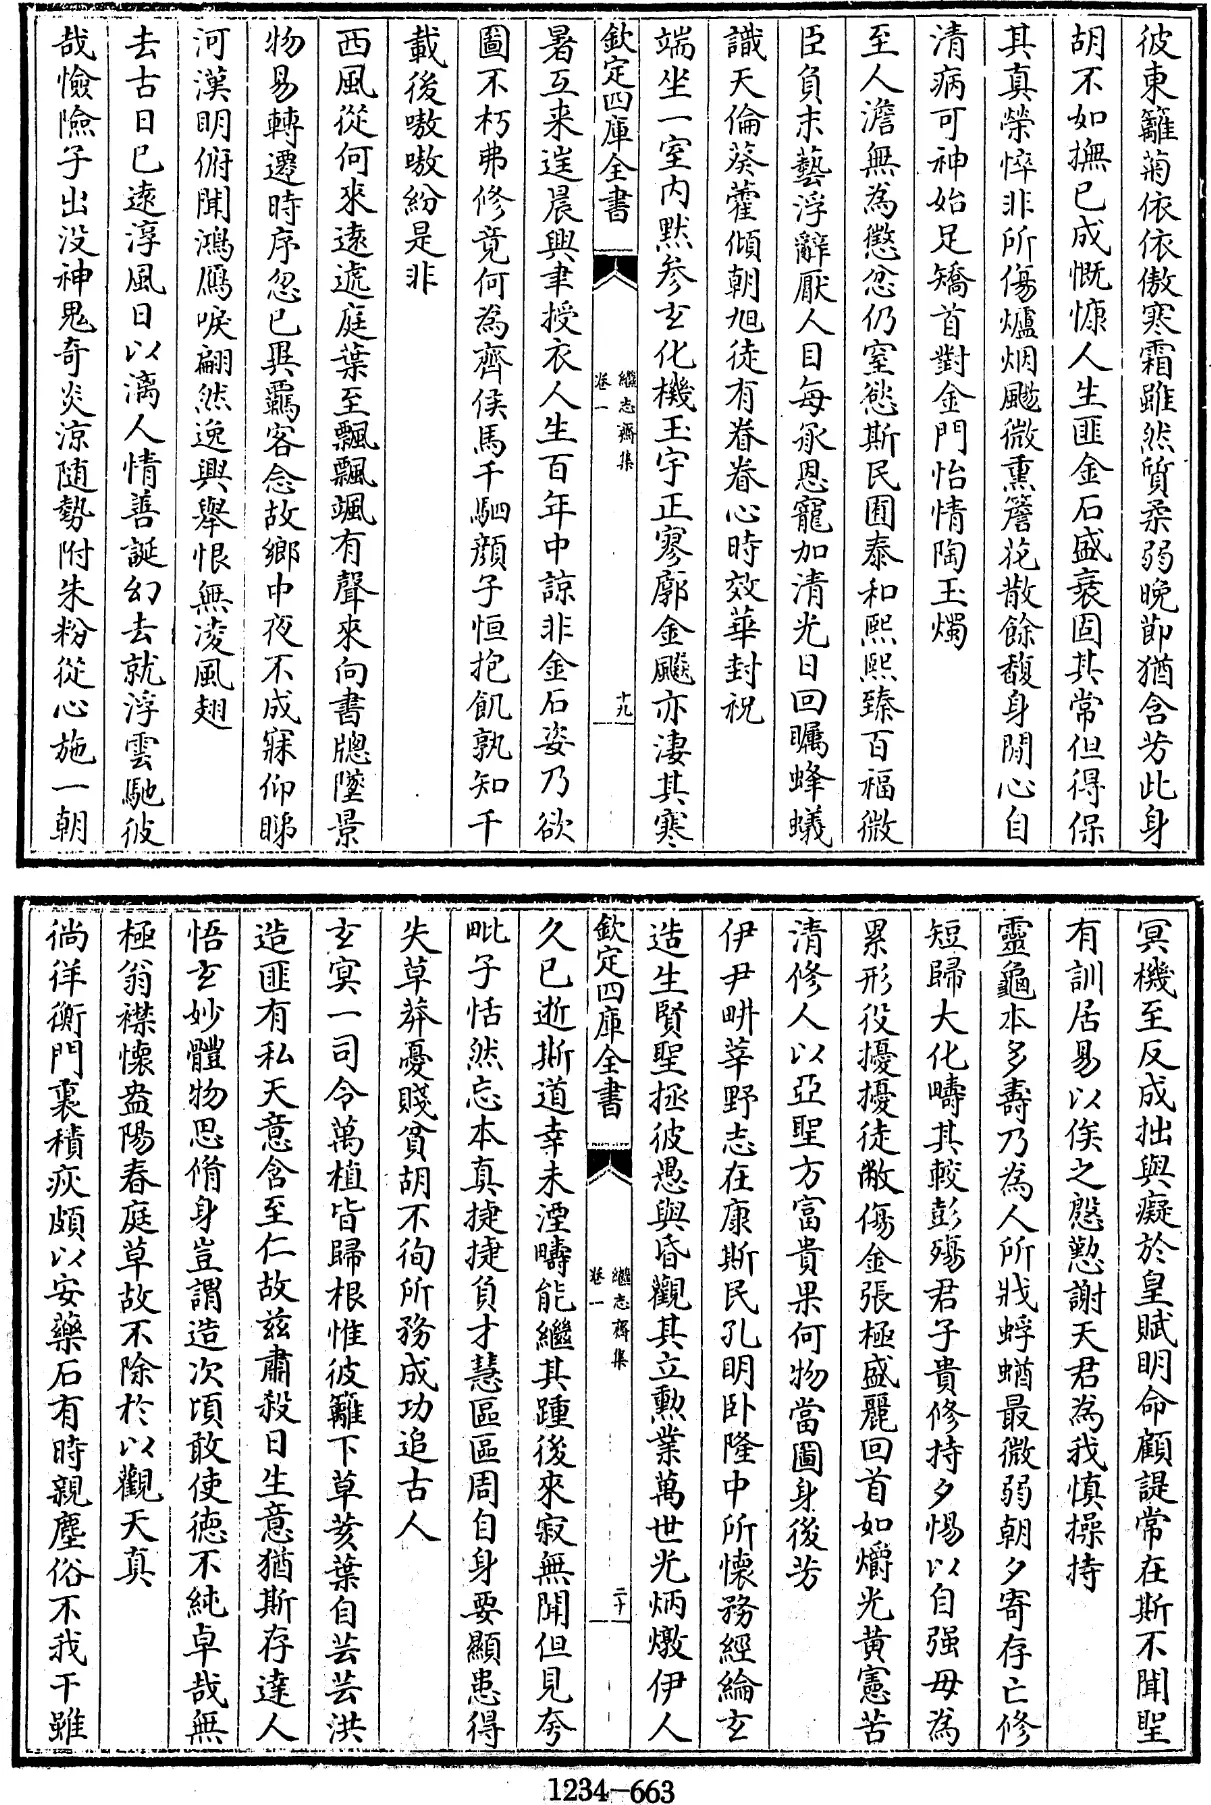 彼東籬菊依依傲寒霜雖然質柔弱晚節猶含芳此身
胡不如撫已成慨慷人生匪金石盛衰固其常但得保
其真榮悴非所傷爐烟颺微熏簷花散餘馥身閒心自
清病可神始足矯首對金門怡情陶玉燭
至人澹無為懲忿仍窒慾斯民囿泰和熙熙臻百福微
臣負末藝浮辭厭人目每承恩寵加清光日回矚蜂蟻
識天倫葵藿傾朝旭徒有眷眷心時效華封祝
端坐一室内默參玄化機玉宇正寥廓金飈亦淒其寒
欽定四庫全書
繼志齋集
卷一
十九
暑互来逆晨興聿授衣人生百年中諒非金石姿乃欲
圖不朽弗修竟何為齊侯馬千駟顔子恒抱飢孰知千
載後嗷嗷紛是非
西風從何來遠遞庭葉至飄飄颯有聲來向書牕墜景
物易轉遷時序忽已異羈客念故鄉中夜不成寐仰睇
河漢明俯聞鴻鴈唳翩然逸興舉恨無凌風翅
去古日已遠淳風日以漓人情善誕幻去就浮雲馳彼
哉憸險子出没神鬼奇炎涼随勢附朱粉從心施一朝
冥機至反成拙與癡於皇賦明命顧諟常在斯不聞聖
有訓居易以俟之慇懃謝天君為我慎操持
靈龜本多壽乃為人所戕蜉蝣最微弱朝夕寄存亡修
短歸大化疇其較彭殤君子貴修持夕惕以自强毋為
累形役擾擾徒敝傷金張極盛麗回首如爝光黄憲苦
清修人以亞聖方富貴果何物當圖身後芳
伊尹畊莘野志在康斯民孔明卧隆中所懷務經綸玄
造生賢聖拯彼愚與昏觀其立勳業萬世光炳燉伊人
欽定四庫全書
繼志齋集
卷一
二十
久已逝斯道幸未湮疇能繼其踵後來寂無聞但見夸
毗子恬然忘本真捷捷負才慧區區周自身要顯患得
失草莽憂賤貧胡不徇所務成功追古人
玄冥一司令萬植皆歸根惟彼籬下草荄葉自芸芸洪
造匪有私天意含至仁故兹肅殺日生意猶斯存達人
悟玄妙體物思脩身豈謂造次頃敢使徳不純卓哉無
極翁襟懷盎陽春庭草故不除於以觀天真
徜徉衡門裏積疢頗以安藥石有時親塵俗不我干雖
1234-663